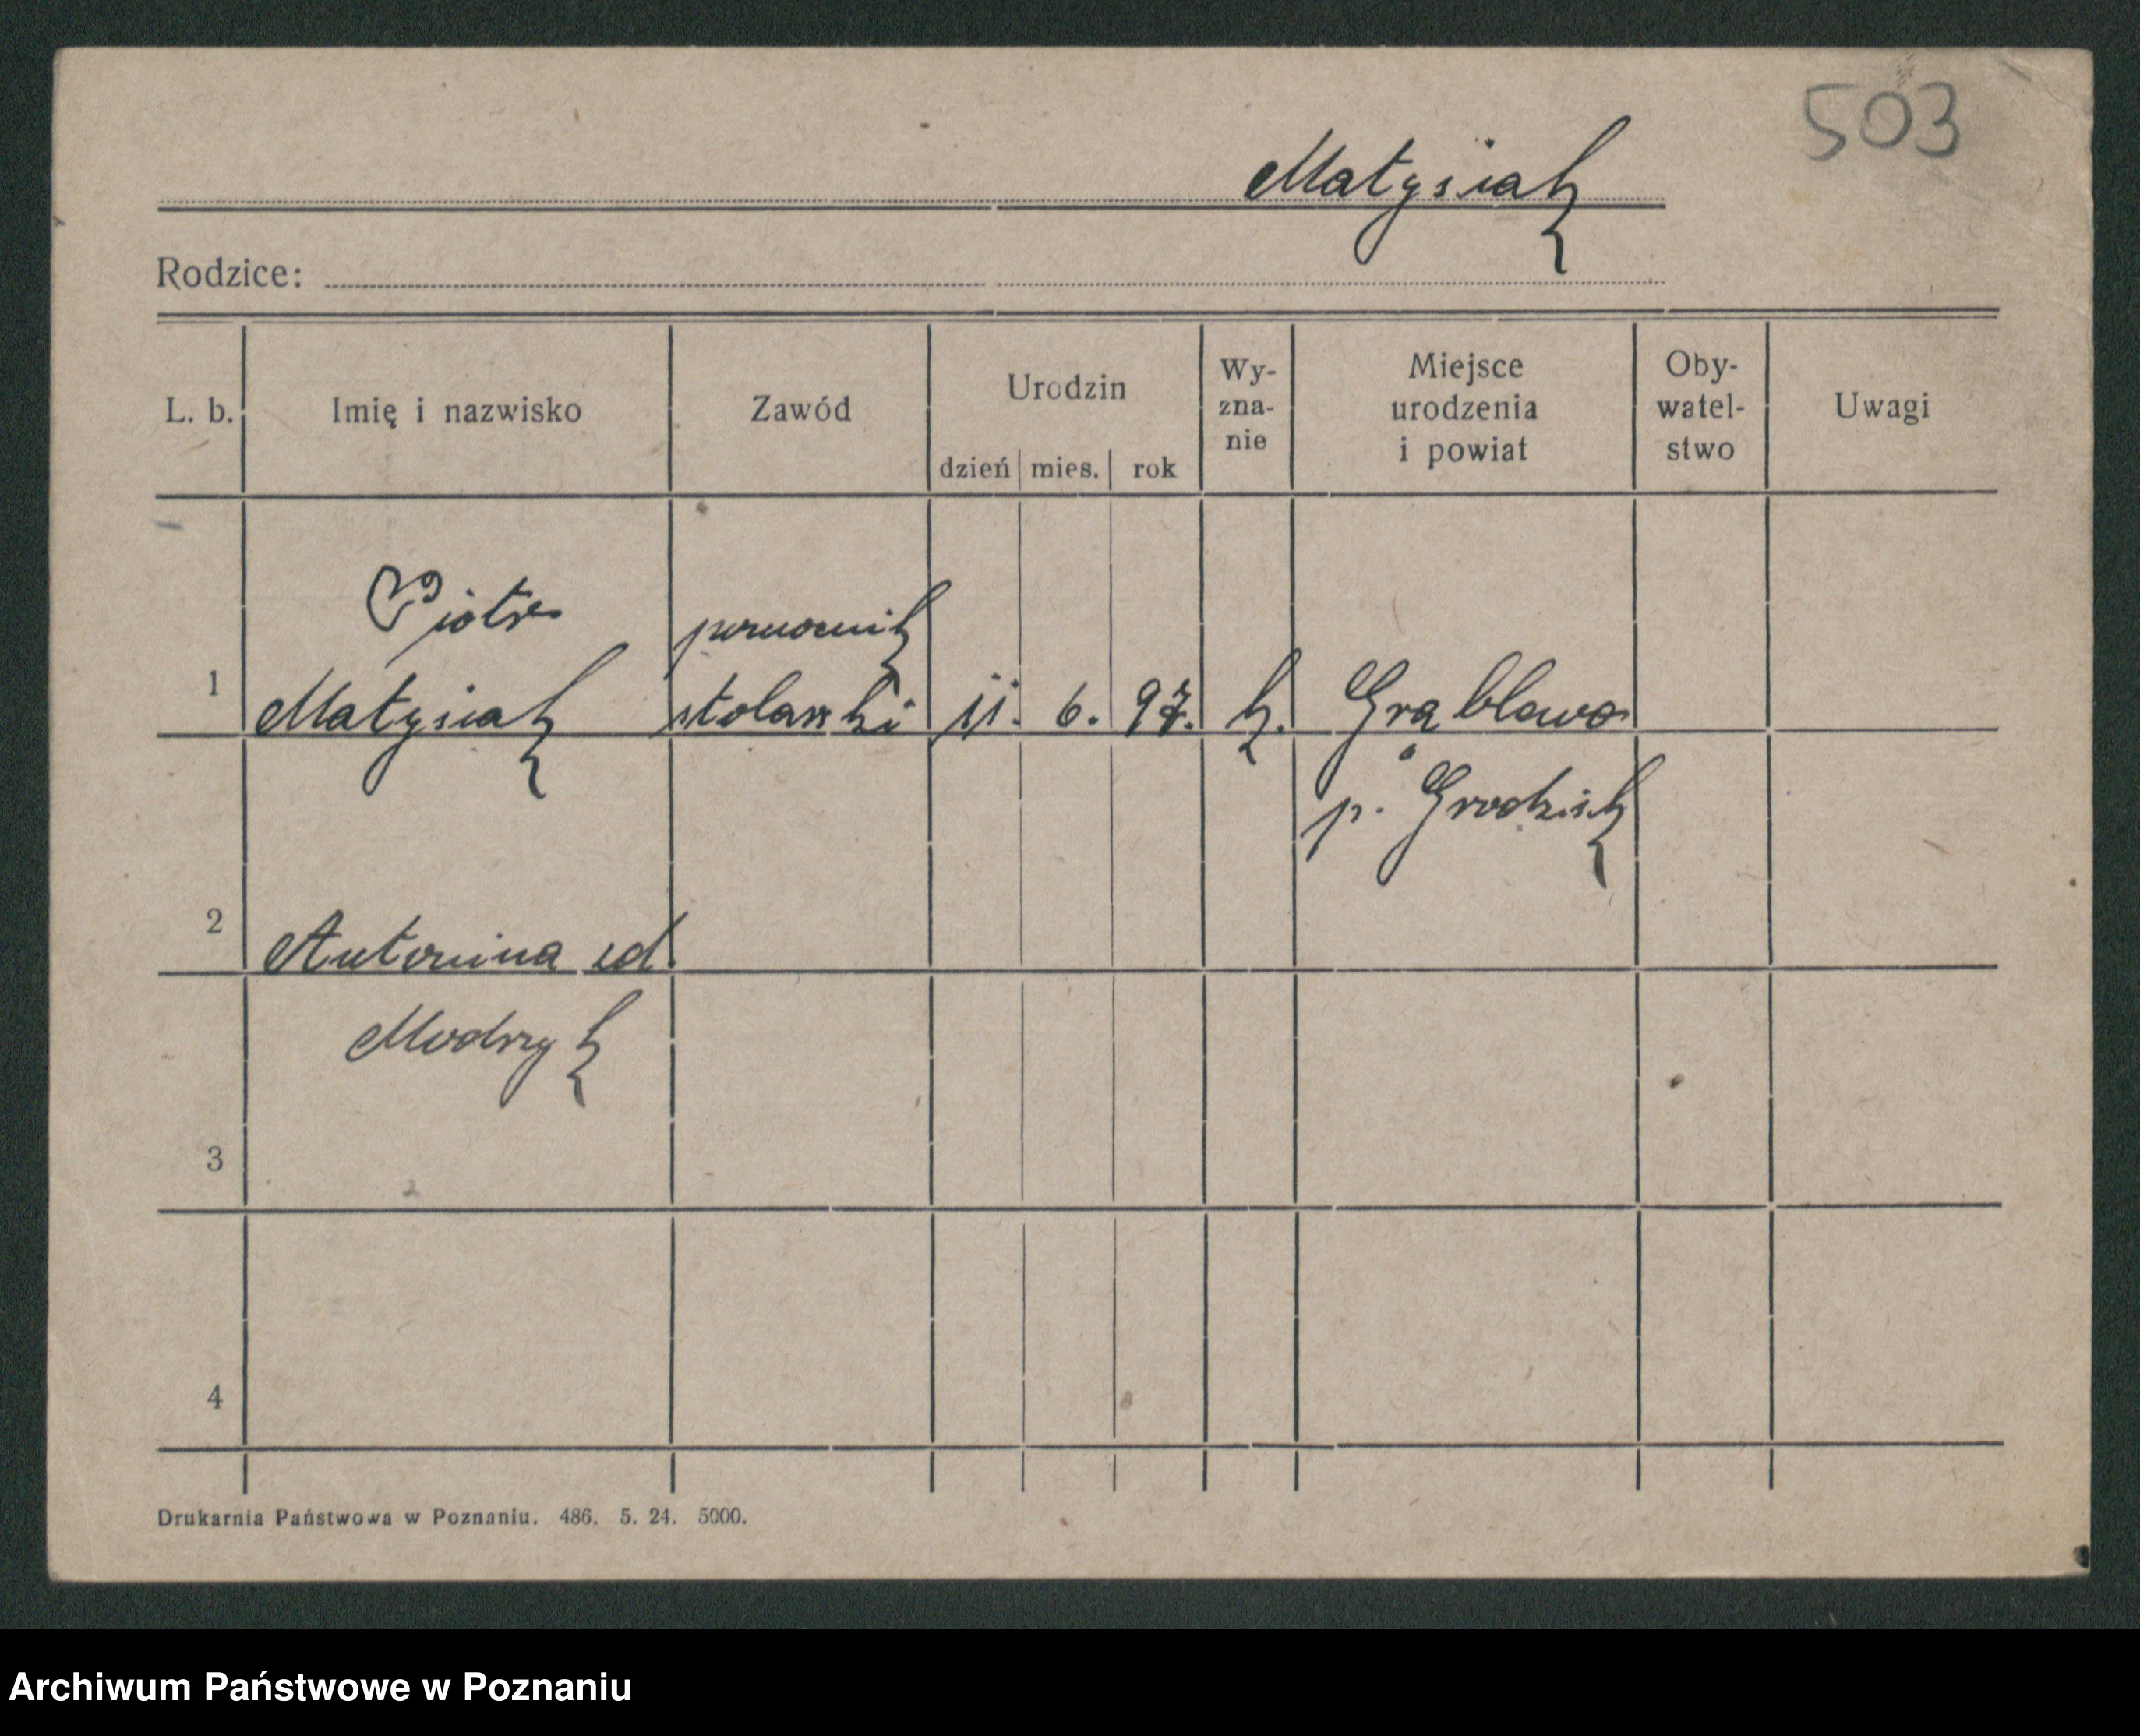 503
Matysiak
Rodzice:
L. b.
Imię i nazwisko
Zawód
Urodzin
dzień mies. rok
Wy-
zna-
nie
Miejsce
urodzenia
i powiat
Oby-
watel-
stwo
Uwagi
1
Piotr
Matysiak
pomocnik
stolarski
11. 6. 97. k.
Grąblewo
p. Grodzisk
2
Antonina zd.
Modrzyk
3
4
Drukarnia Państwowa w Poznaniu. 486. 5. 24. 5000.
Archiwum Państwowe w Poznaniu